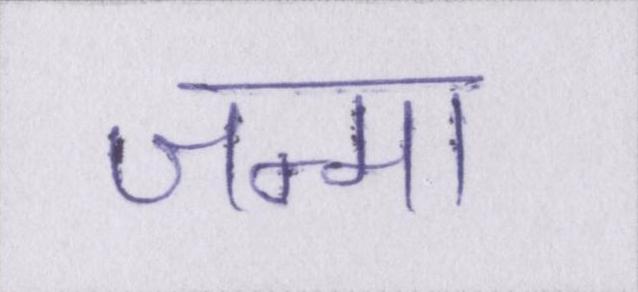 जन्मा